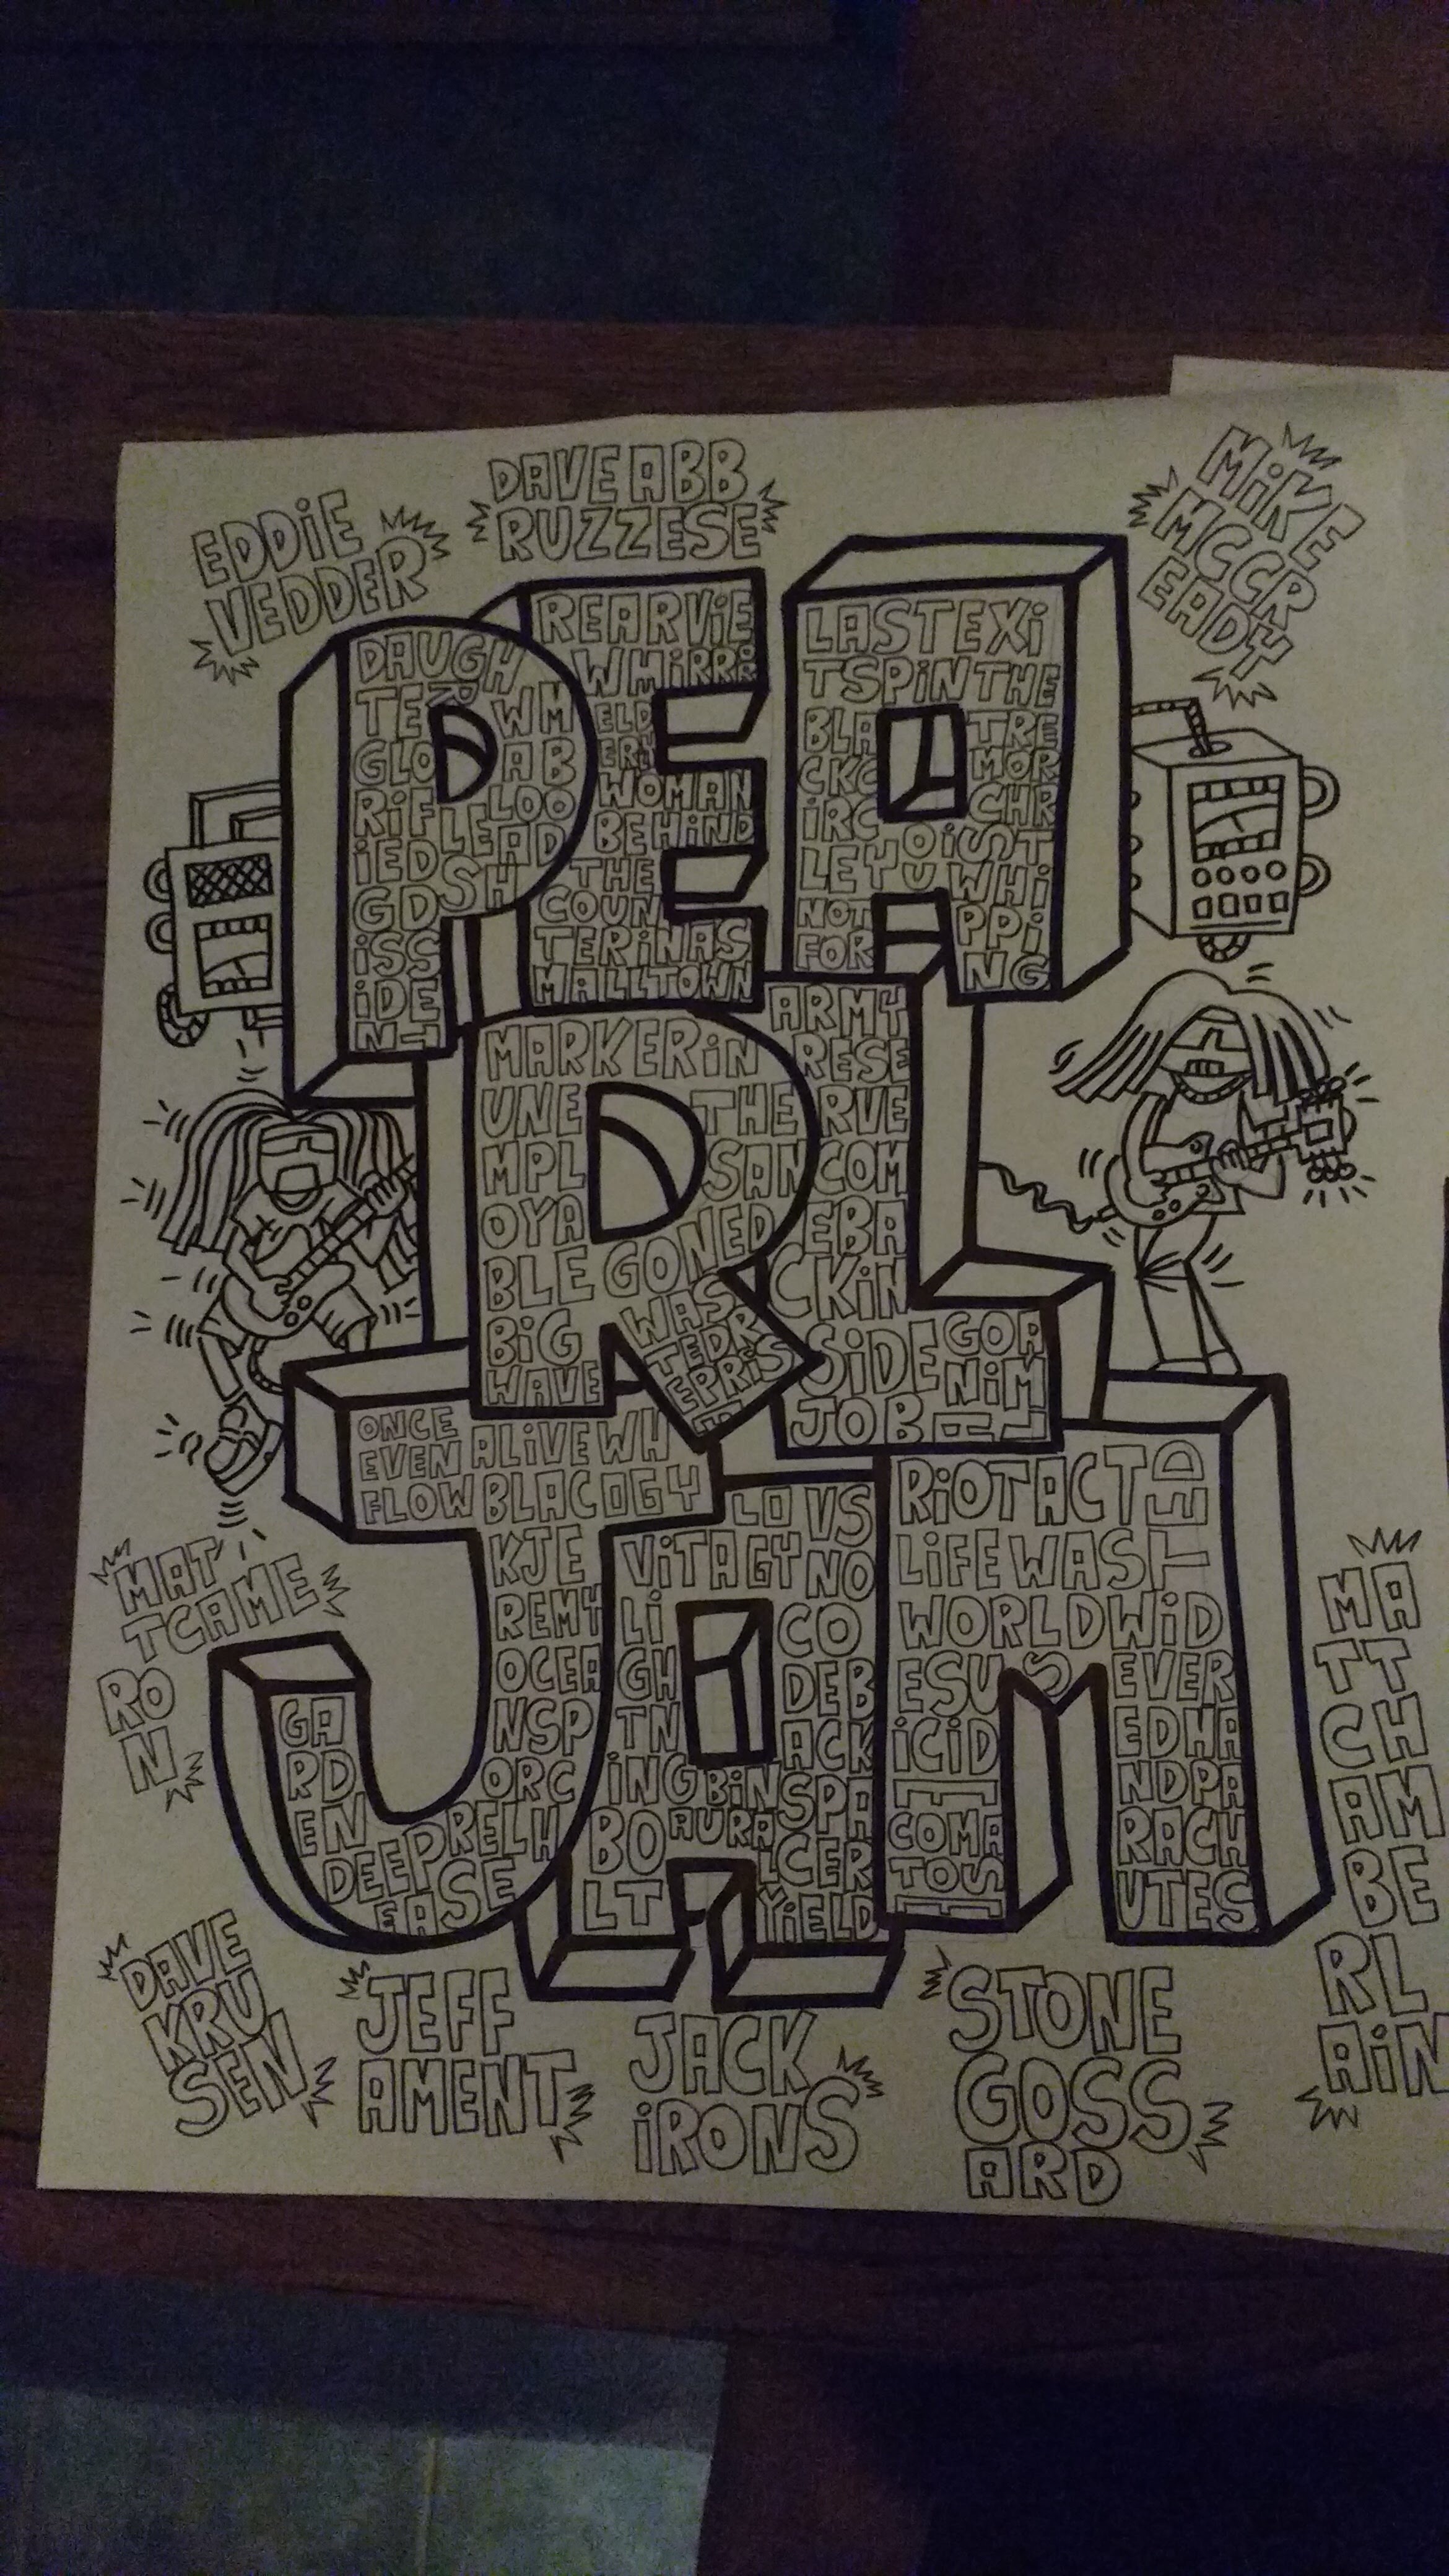 EDDiE
VEDDER
DAVE ABB
RUZZESE
MiKE
MCCR
EADY
PEA
RL
JAM
DAUGH
TER WM
GLO AB
RiF LOO
LEAD
iED SH
GD
iSS
iDE
NT
REARViE
WMiRROR
ELD
ERLY
WOMAN
BEHiND
THE
COUN
TERiNAS
MALLTOWN
LASTEXi
TSPiNTHE
BLA TRE
CKC MOR
iRC CHR
LEYOU iST
WHi
NOT PPi
FOR NG
MARKERiN
UNE THE
MPL SAN
OYA
BLE GONED
BiG WAS
WAVE TEDR
EPRiS
E
ARMY
RESE
RVE
COM
EBA
CKiN
SiDE GOR
NiM
JOB AL
ONCE
EVEN ALiVE WH
FLOW BLAC OGY
KJE
REMY
OCEA
NSP
ORC
GA
RD
EN
DEEP RELH
EASE
LO VS
ViTAGY NO
Li CO
GH DEB
TN ACK
iNG BiN SPA
BO AURA CER
LT YiELD
RiOTACT ED
LiFEWAST
WORLDWiD
ESUS EVER
iCiD EDHA
E NDPA
COMA RACH
TOS UTES
E
MAT
TCAME
RO
N
MA
TT
CH
AM
BE
RL
AiN
DAVE
KRU
SEN
JEFF
AMENT
JACK
iRONS
STONE
GOSS
ARD